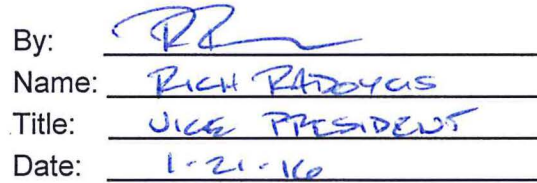 By:
Name: RICH RADOYCIS
Title: VICE PRESIDENT
Date: 1-21-16